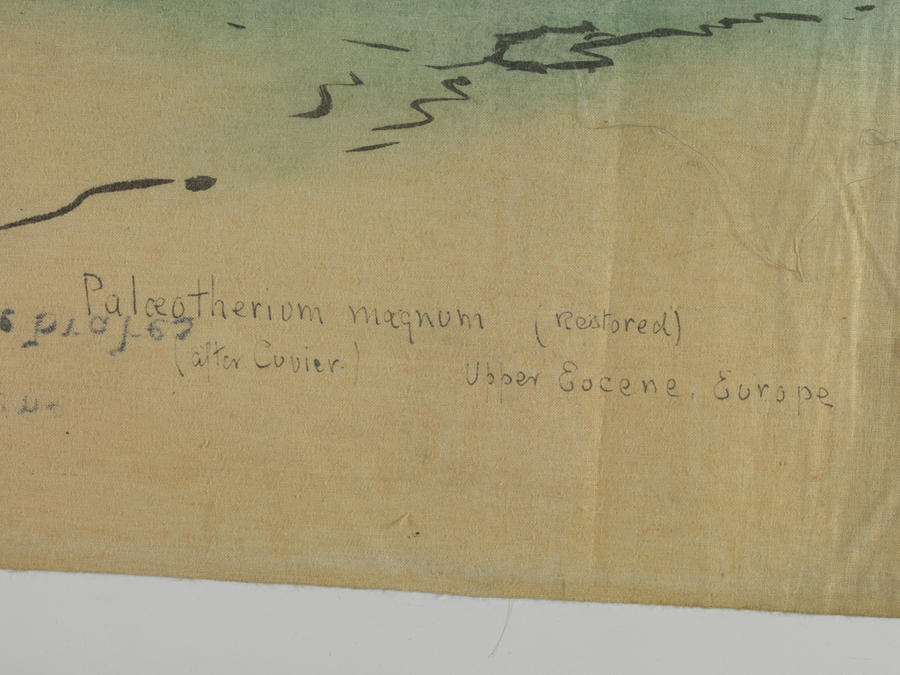 Palæotherium magnum (Restored)
(after Cuvier.)
Upper Eocene, Europe